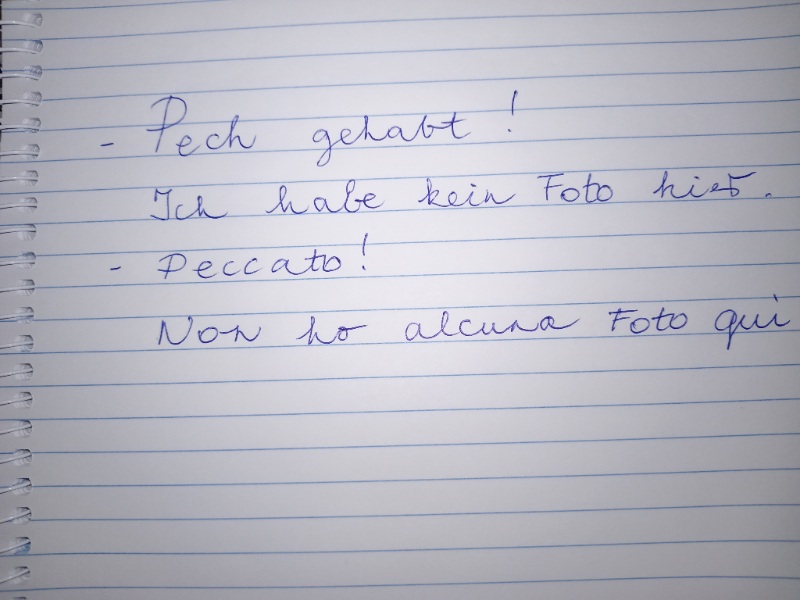 - Pech gehabt!
Ich habe kein Foto hier.
- Peccato!
Non ho alcuna Foto qui